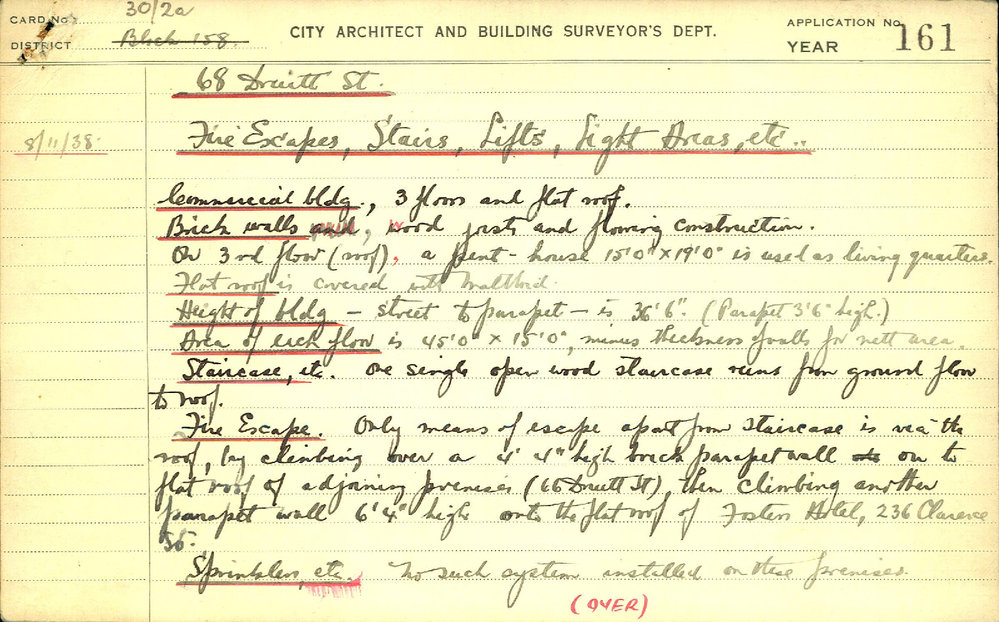 CARD No. 30/2a
DISTRICT Block 158.
CITY ARCHITECT AND BUILDING SURVEYOR'S DEPT.
APPLICATION No.
YEAR
161
68 Druitt St.
8/11/38.
Fire Escapes, Stairs, Lifts, Light Areas, etc..
Commercial bldg., 3 floors and flat roof.
Brick walls and, wood joists and flooring construction.
On 3rd floor (roof), a pent-house 15'0" x 19'0" is used as living quarters.
Flat roof is covered with malthoid.
Height of bldg – street to parapet – is 36'6". (Parapet 3'6" high.)
Area of each floor is 45'0" x 15'0", minus thickness of walls for nett area.
Staircase, etc. One single open wood staircase runs from ground floor
to roof.
Fire Escape. Only means of escape apart from staircase is via the
roof, by climbing over a 4'4" high brick parapet wall on to
flat roof of adjoining premises (66 Druitt St), then climbing another
parapet wall 6'4" high onto the flat roof of Fosters Hotel, 236 Clarence
St.
Sprinklers, etc. No such system installed on these premises.
(OVER)